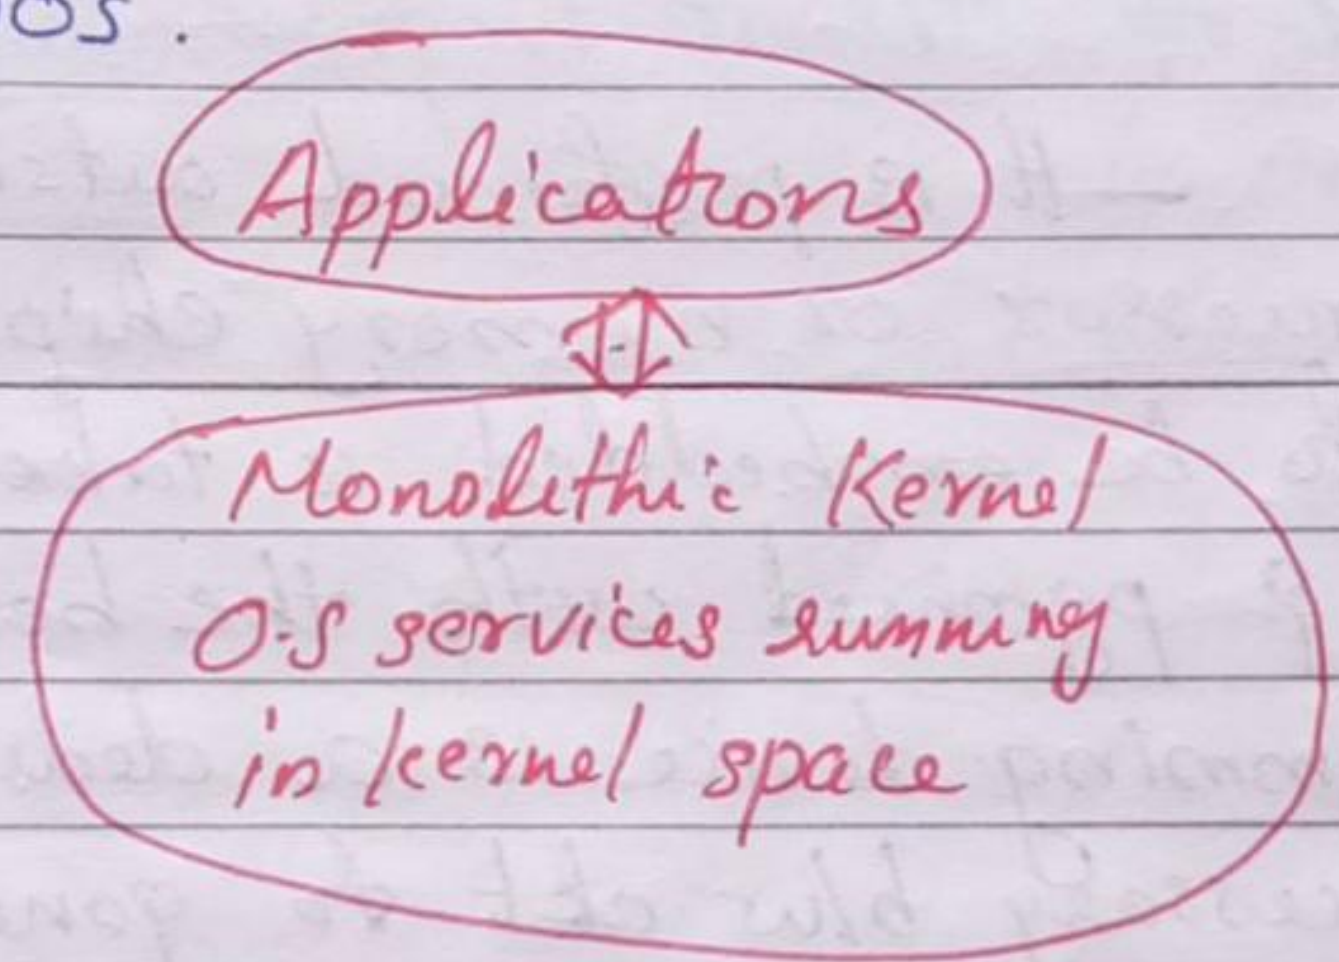 OS.
Applications
Monolithic Kernel
O.S services running
in kernel space